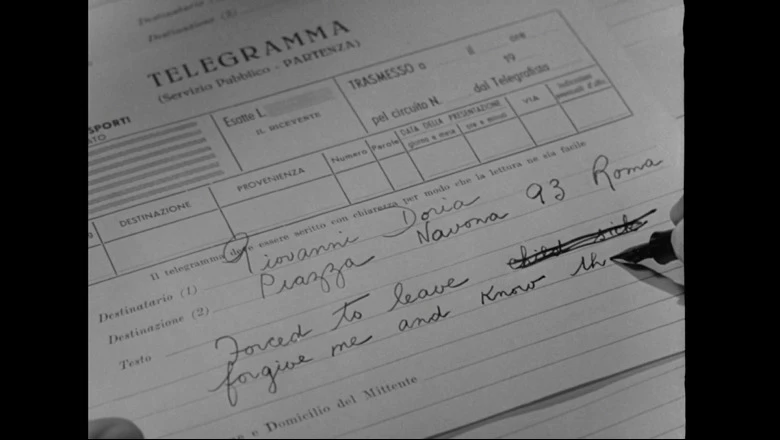 Destinatario (1)
Destinazione (2)
TELEGRAMMA
(Servizio Pubblico - PARTENZA)
SPORTI
STO
Esatte L.
IL RICEVENTE
TRASMESSO a il ore
19
pel circuito N. dal Telegrafista
DESTINAZIONE PROVENIENZA Numero Parole DATA DELLA PRESENTAZIONE giorno e mese ore e minuti VIA
Il telegramma deve essere scritto con chiarezza per modo che la lettura ne sia facile
Destinatario (1) Giovanni Doria
Destinazione (2) Piazza Navona 93 Roma
Testo Forced to leave child
forgive me and know th
e Domicilio del Mittente